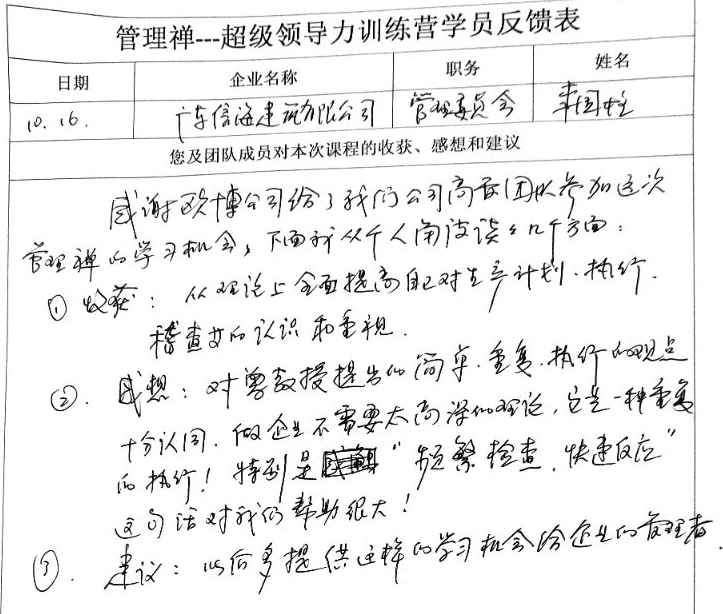 管理禅---超级领导力训练营学员反馈表
日期 企业名称 职务 姓名
10.16. 广东信海建筑有限公司 管理委员会 国柱
您及团队成员对本次课程的收获、感想和建议
感谢欧博公司给了我们公司高管团队参加这次
管理禅的学习机会，下面我从个人角度谈谈几个方面：
① 收获：从理论上全面提高自己对生产计划、执行、
稽查的认识和重视.
②. 感想：对曾教授提出的简单、重复、执行的观点
十分认同. 做企业不需要太高深的理论，它是一种重复
的执行！特别是 “频繁检查，快速反应”
这句话对我们帮助很大！
③. 建议：以后多提供这样的学习机会给企业的管理者.